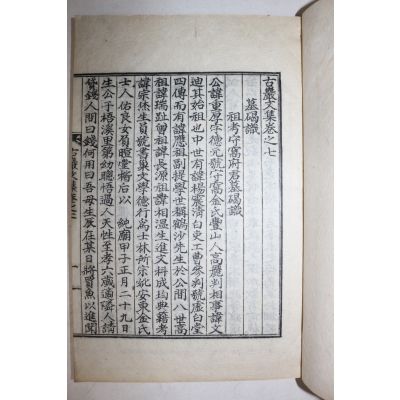 古巖文集卷之七
墓碣識
祖考守窩府君墓碣識
公諱重原字德元號守窩金氏豐山人高麗判相事諱文
迪其始祖也中世有諱楊震淸白吏工曹參判號虛白堂
四傳而有諱應祖副提學世稱鶴沙先生於公間八世高
祖諱瑞趾曾祖諱長源祖諱相溫生進文科成均典籍考
諱宗烋生員號書巢文學德行爲士林所宗妣安東金氏
士人佑良女負暄堂楷后以 純廟甲子正月二十九日
生公于梧溪里第幼聰悟過人天性至孝六歲適隣人請
貸錢人問曰錢何用曰吾母生辰在某日將買魚以進聞
古巖文集卷之七
一